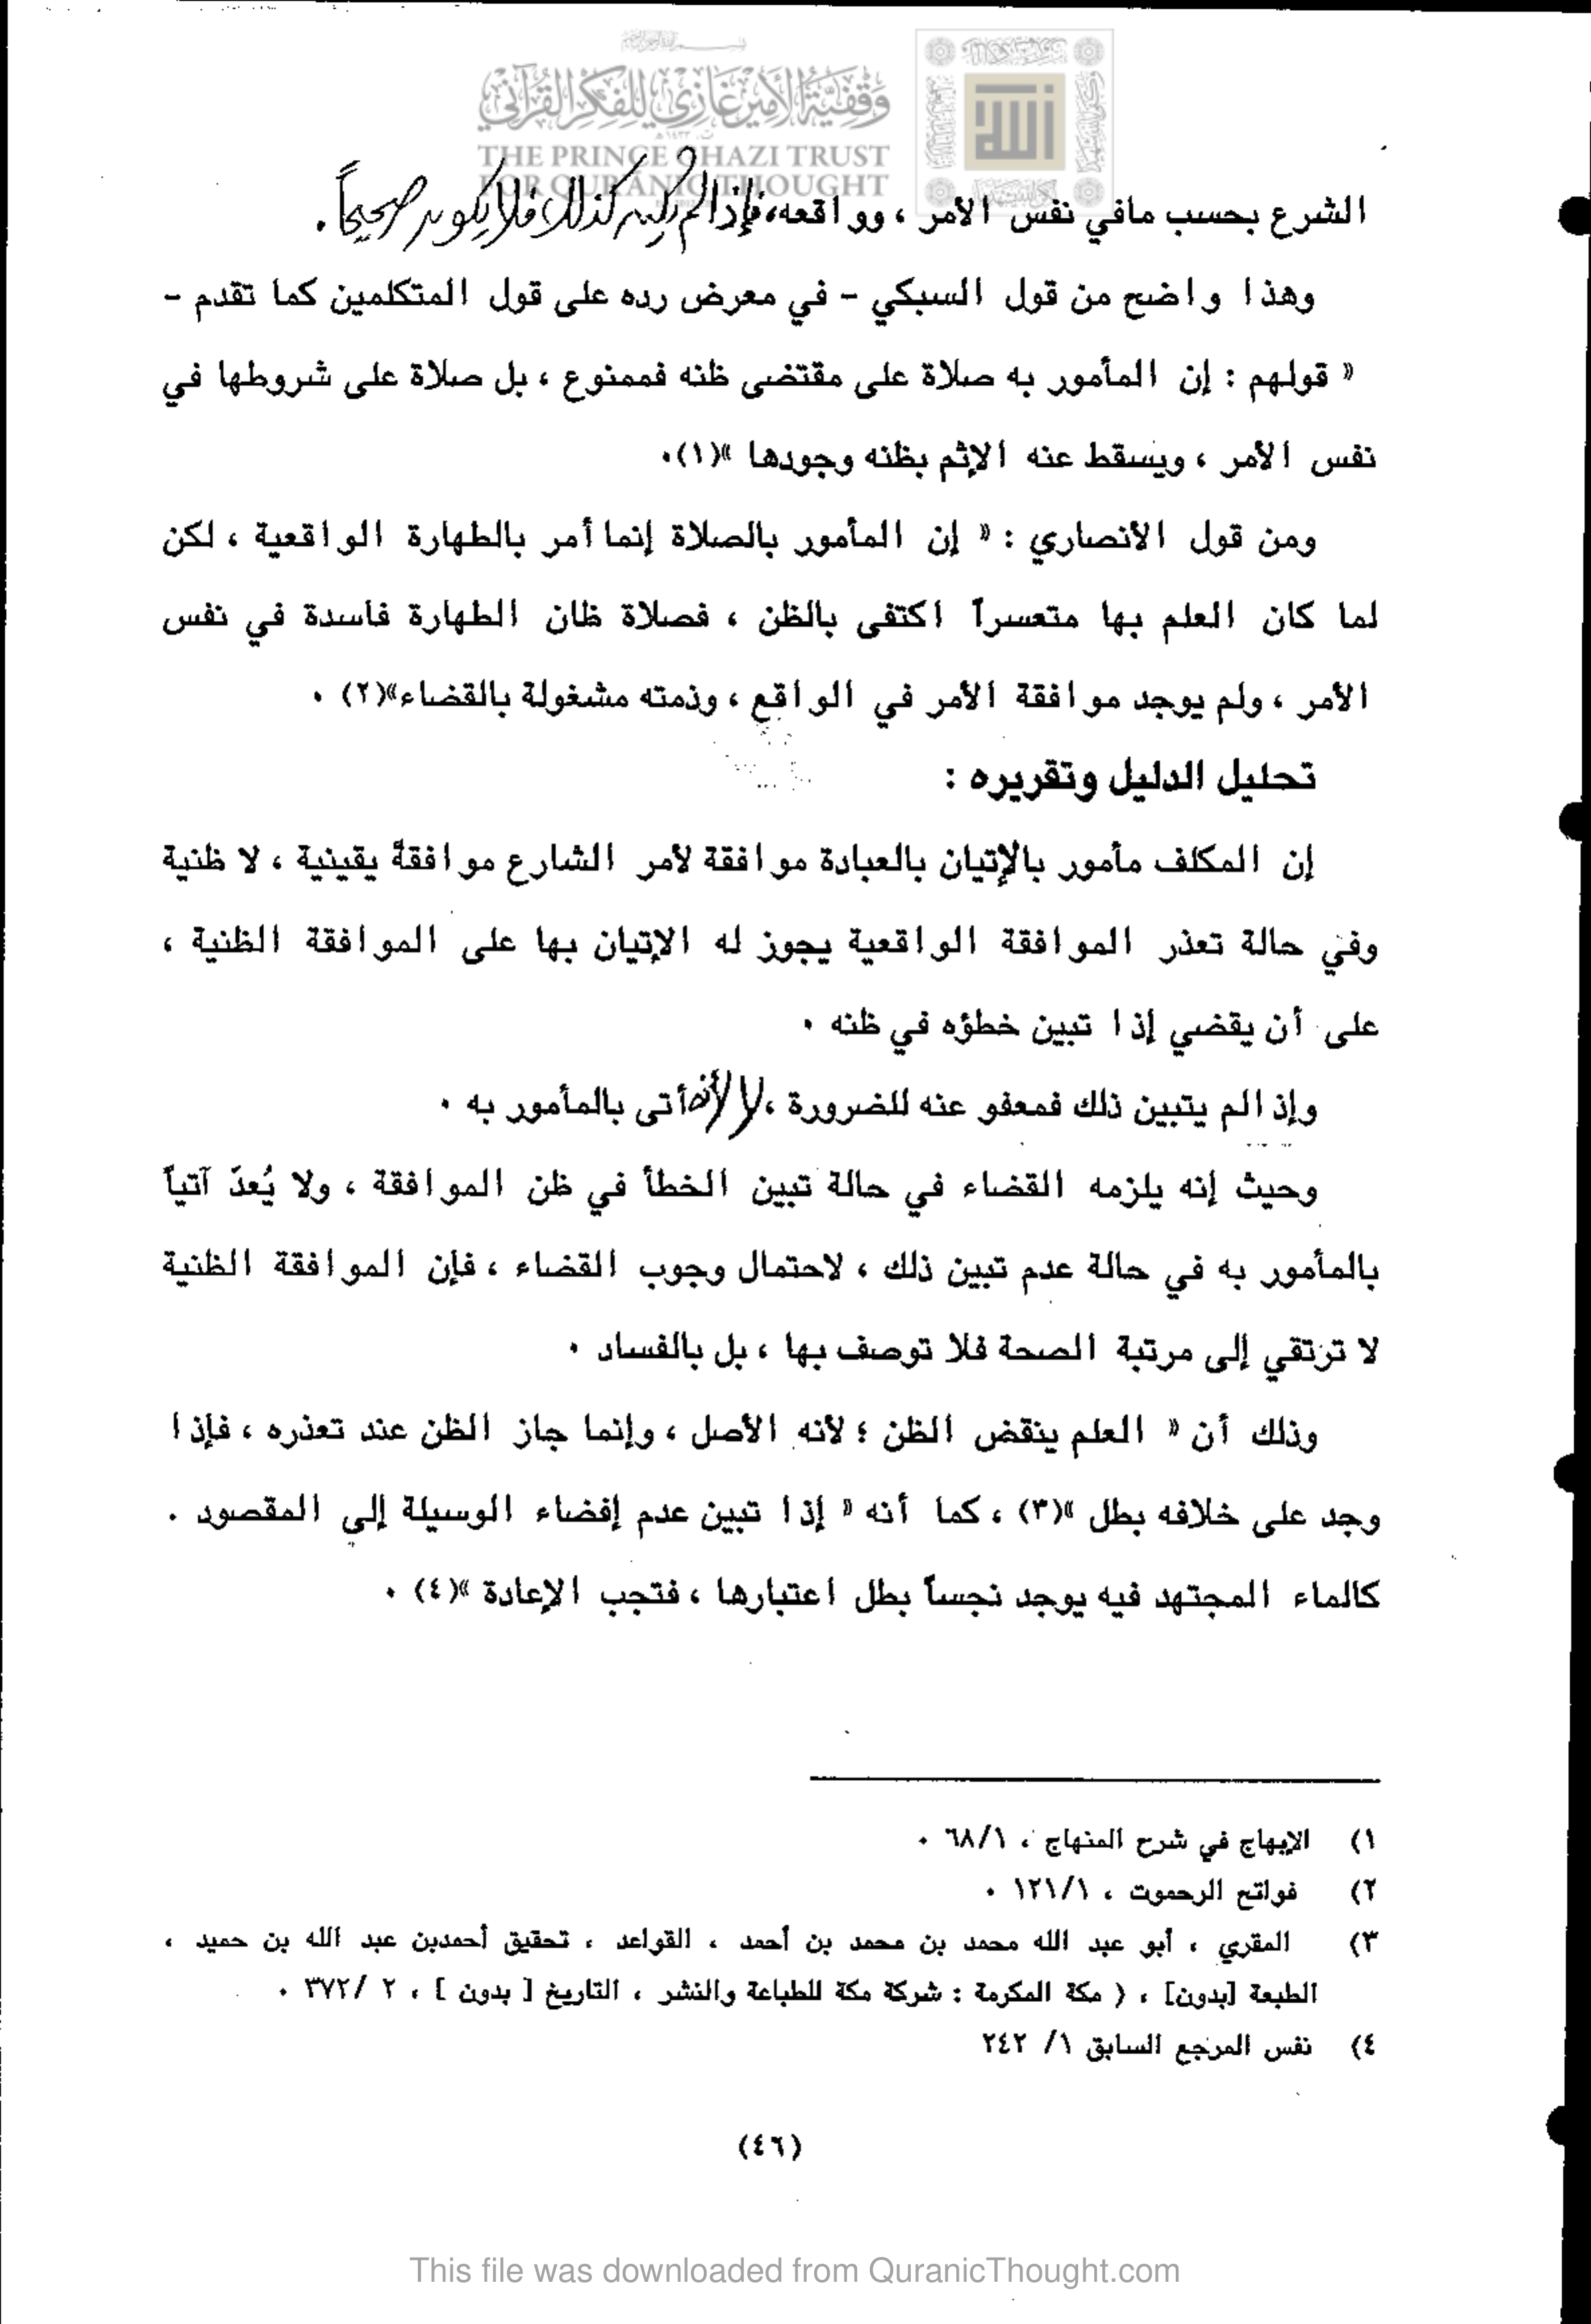 وقفية الأمير غازي للفكر القرآني
THE PRINCE GHAZI TRUST
FOR QURANIC THOUGHT
الله
الشرع بحسب مافي نفس الأمر ، وواقعه، فإذا لم يكن كذلك فلا يكون صحيحاً .
وهذا واضح من قول السبكي - في معرض رده على قول المتكلمين كما تقدم -
« قولهم : إن المأمور به صلاة على مقتضى ظنه فممنوع ، بل صلاة على شروطها في
نفس الأمر ، ويسقط عنه الإثم بظنه وجودها »(١).
ومن قول الأنصاري : « إن المأمور بالصلاة إنما أمر بالطهارة الواقعية ، لكن
لما كان العلم بها متعسراً اكتفى بالظن ، فصلاة ظان الطهارة فاسدة في نفس
الأمر ، ولم يوجد موافقة الأمر في الواقع ، وذمته مشغولة بالقضاء»(٢) .
تحليل الدليل وتقريره :
إن المكلف مأمور بالإتيان بالعبادة موافقة لأمر الشارع موافقةً يقينية ، لا ظنية
وفي حالة تعذر الموافقة الواقعية يجوز له الإتيان بها على الموافقة الظنية ،
على أن يقضي إذا تبين خطؤه في ظنه .
وإذا لم يتبين ذلك فمعفو عنه للضرورة ، لا لأنه أتى بالمأمور به .
وحيث إنه يلزمه القضاء في حالة تبين الخطأ في ظن الموافقة ، ولا يُعدّ آتياً
بالمأمور به في حالة عدم تبين ذلك ، لاحتمال وجوب القضاء ، فإن الموافقة الظنية
لا ترتقي إلى مرتبة الصحة فلا توصف بها ، بل بالفساد .
وذلك أن « العلم ينقض الظن ؛ لأنه الأصل ، وإنما جاز الظن عند تعذره ، فإذا
وجد على خلافه بطل »(٣) ، كما أنه « إذا تبين عدم إفضاء الوسيلة إلى المقصود .
كالماء المجتهد فيه يوجد نجساً بطل اعتبارها ، فتجب الإعادة »(٤) .
١) الإبهاج في شرح المنهاج ، ٦٨/١ .
٢) فواتح الرحموت ، ١٢١/١ .
٣) المقري ، أبو عبد الله محمد بن محمد بن أحمد ، القواعد ، تحقيق أحمدبن عبد الله بن حميد ،
الطبعة [بدون] ، ( مكة المكرمة : شركة مكة للطباعة والنشر ، التاريخ [ بدون ] ، ٢ /٣٧٢ .
٤) نفس المرجع السابق ١/ ٢٤٢
(٤٦)
This file was downloaded from QuranicThought.com